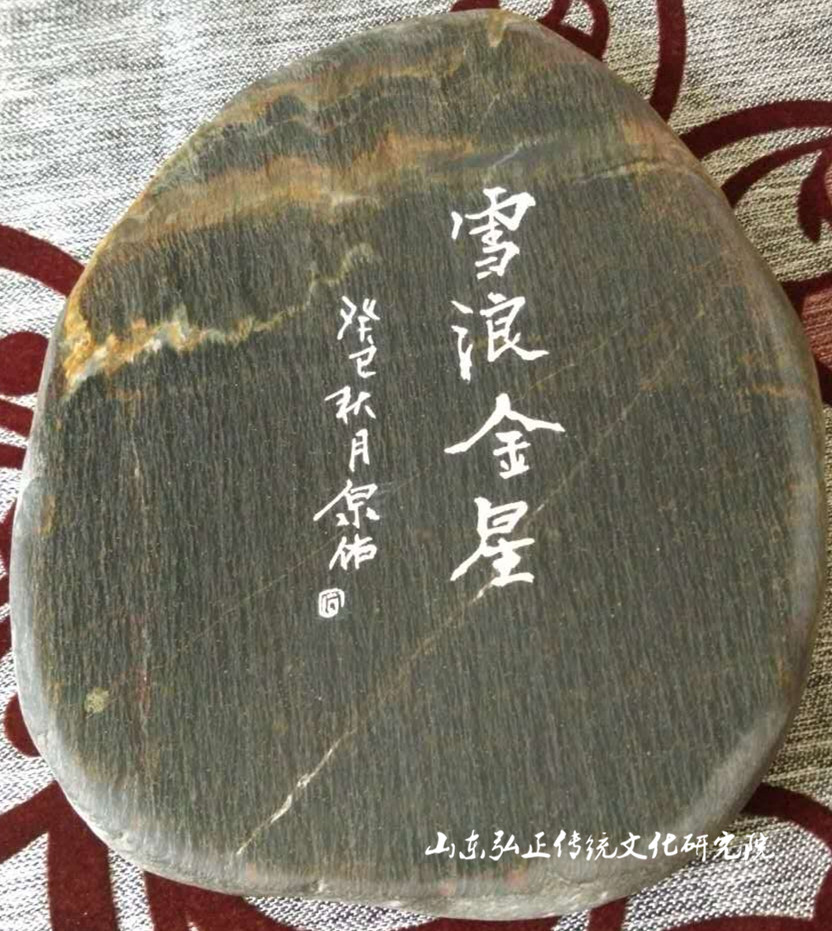 雪浪金星
癸巳秋月原佑
山东弘正传统文化研究院